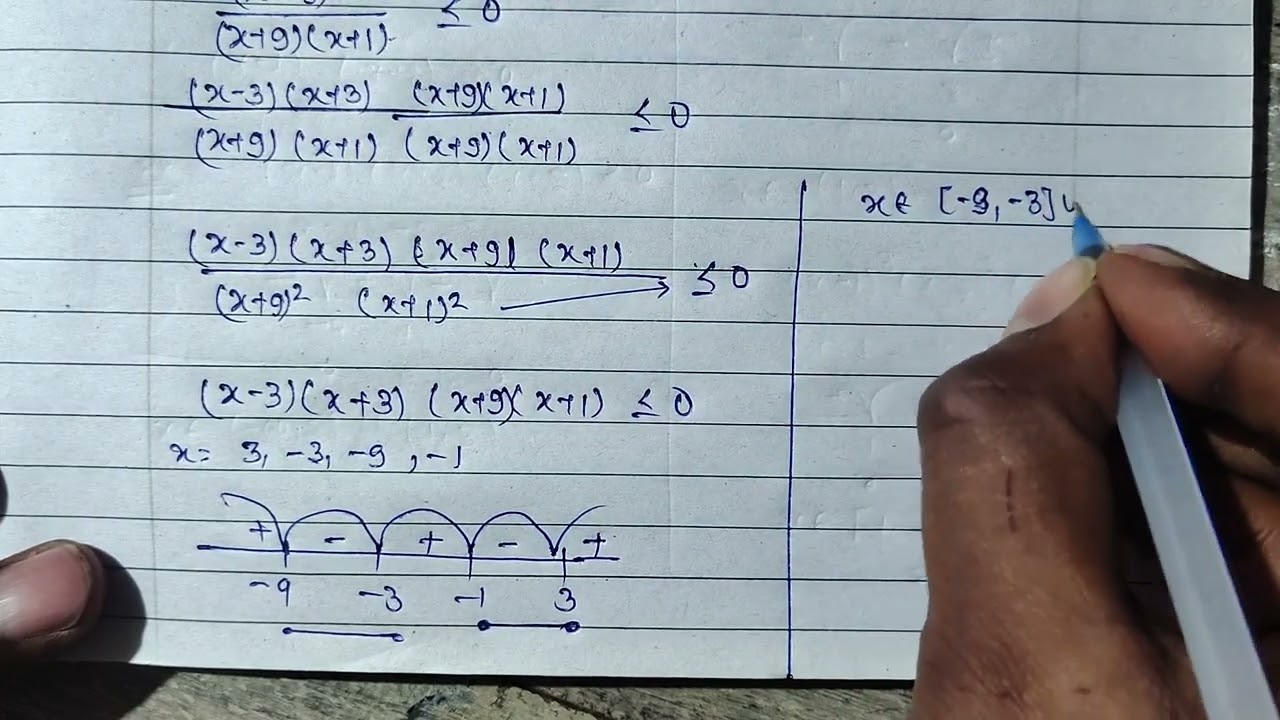 (x+9)(x+1) ≤ 0
(x-3)(x+3) (x+9)(x+1)
(x+9) (x+1) (x+9)(x+1) ≤ 0
(x-3)(x+3) (x+9) (x+1)
(x+9)² (x+1)² ≤ 0
(x-3)(x+3) (x+9)(x+1) ≤ 0
x= 3, -3, -9, -1
+ - + - +
-9 -3 -1 3
x∈ [-9, -3] ∪